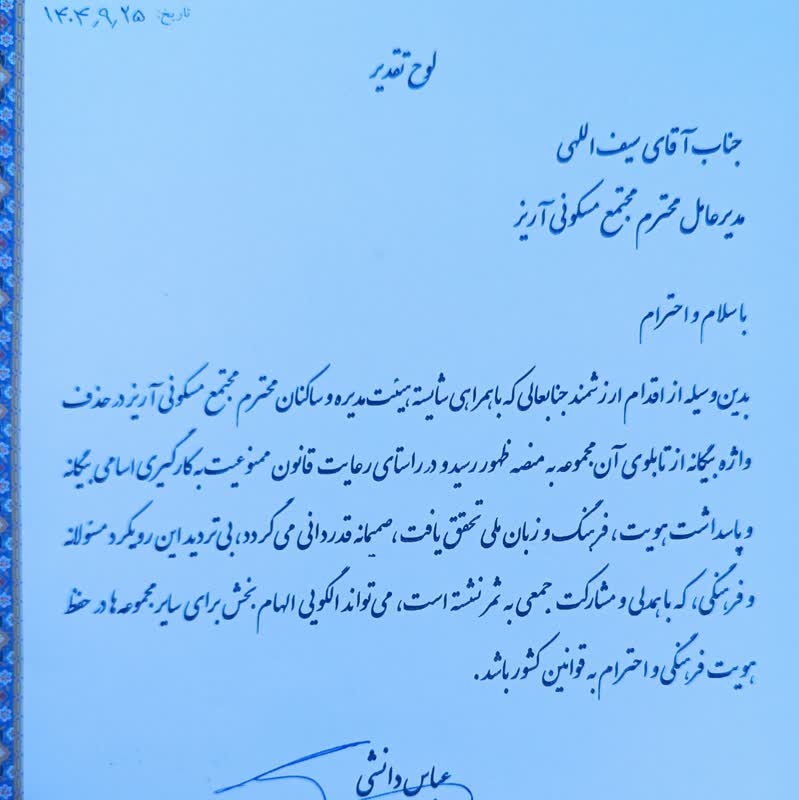 تاریخ: ۱۴۰۴٫۹٫۲۵
لوح تقدیر
جناب آقای سیف اللهی
مدیرعامل محترم مجتمع مسکونی آریز
با سلام و احترام
بدین وسیله از اقدام ارزشمند جنابعالی که با همراهی شایسته هیئت مدیره و ساکنان محترم مجتمع مسکونی آریز در حذف
واژه بیگانه از تابلوی آن مجموعه به منصه ظهور رسید و در راستای رعایت قانون ممنوعیت به کارگیری اسامی بیگانه
و پاسداشت هویت، فرهنگ و زبان ملی تحقق یافت، صمیمانه قدردانی می گردد، بی تردید این رویکرد مسئولانه
و فرهنگی، که با همدلی و مشارکت جمعی به ثمر نشسته است، می تواند الگویی الهام بخش برای سایر مجموعه ها در حفظ
هویت فرهنگی و احترام به قوانین کشور باشد.
عباس دانشی